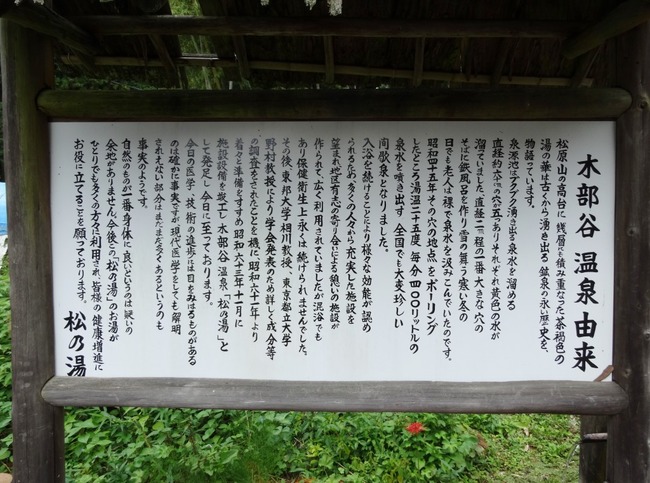 木部谷温泉由来
松原山の高台に幾層にも積み重なった茶褐色の
湯の華は古くから湧き出る鉱泉の永い歴史を、
物語っています。
泉源池はブクブク湧き出る泉水を溜める
直径約六十㎝の穴が五つありそれぞれ黄色の水が
溜っていました。直径二m程の一番大きな穴の
そばに鉄風呂を作り雪の舞う寒い冬の
日でも老人は裸で泉水を汲みこんでいたのです。
昭和四十五年その穴の地点をボーリング
したところ湯温二十五度 毎分四〇〇リットルの
泉水を噴き出す 全国でも大変珍しい
間歇泉となりました。
入浴を続けることにより様々な効能が認め
られるため、多くの人々から充実した施設を
望まれ地区有志の寄り合による憩いの施設が
作られて、広く利用されていましたが混浴でも
あり保健衛生上永くは続けられませんでした。
その後、東邦大学相川教授、東京都立大学
野村教授により学会発表のため詳しく成分等
の調査をされたことを機に、昭和六十一年より
着々と準備をすすめ昭和六三年十月に
施設設備を竣工し木部谷温泉「松乃湯」と
して発足し今日に至っております。
今日の医学・技術の進歩には目をみはるものがある
のは確かに事実ですが現代医学をしても解明
されえない部分はまだまだ多くあるというのも
事実のようです。
自然のものが一番身体に良いというのは疑いの
余地がありません。今後この「松の湯」のお湯が
ひとりでも多くの方々に利用され、皆様の健康増進に
お役に立てることを願っております。
松乃湯